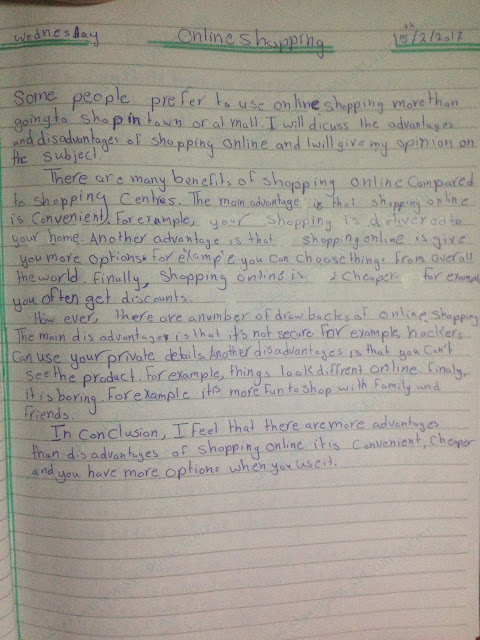 Wednesday Online shopping 15th/2/2017
Some people prefer to use online shopping more than
going to shop in town or at mall. I will dicuss the advantages
and disadvantages of shopping online and I will give my opinion on
the subject.
There are many benefits of shopping online Compared
to shopping Centres. The main advantage is that shopping online
is Convenient. For example, your shopping is delivered to
your home. Another advantage is that shopping online is give
you more options. for example you can choose things from overall
the world. Finally, shopping online is cheaper. for example
you often get discounts.
How ever, there are a number of draw backs of online shopping
The main dis advantages is that it's not secure For example, hackers
Can use your private details. Another disadvantages is that you Can't
see the product. For example, things look diffrent online. Finaly,
it is boring. For example it's more fun to shop with family and
friends.
In Conclusion, I feel that there are more advantages
than dis advantages of shopping online it is Convenient, Cheaper
and you have more options when you use it.